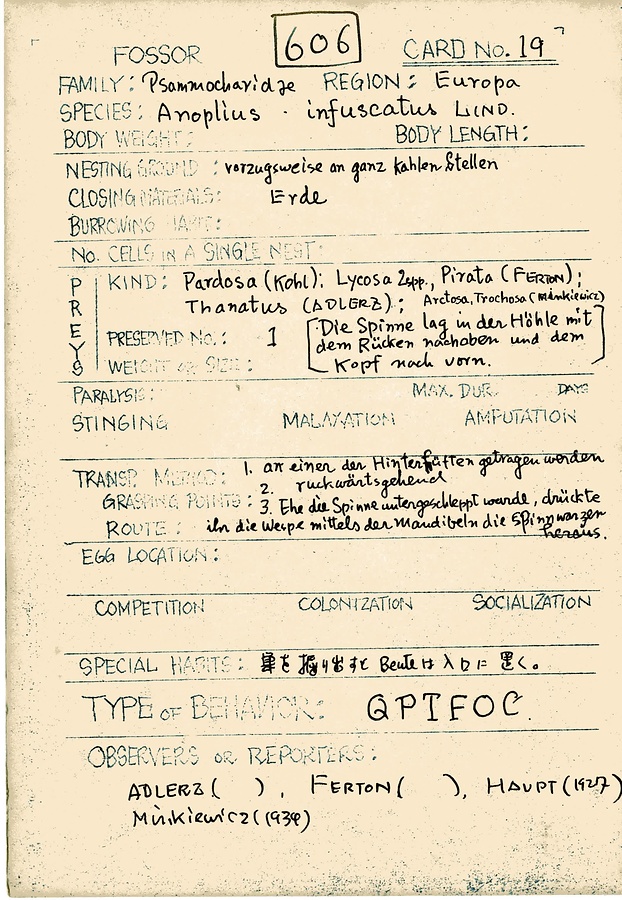 606
FOSSOR CARD No. 19
FAMILY: Psammocharidae REGION: Europa
SPECIES: Anoplius · infuscatus LIND.
BODY WEIGHT: BODY LENGTH:
NESTING GROUND : vorzugsweise an ganz kahlen Stellen
CLOSING MATERIALS: Erde
BURROWING HABIT:
No. CELLS IN A SINGLE NEST:
PREYS
KIND: Pardosa (Kohl); Lycosa 2spp., Pirata (FERTON);
Thanatus (ADLERZ); Arctosa, Trochosa (Minkiewicz)
PRESERVED No.: 1 [Die Spinne lag in der Höhle mit
dem Rücken nachoben und dem
WEIGHT OR SIZE: Kopf nach vorn.]
PARALYSIS: MAX. DUR. DAYS
STINGING MALAXATION AMPUTATION
TRANSP. METHOD: 1. an einer der Hinterhüften getragen werden
2. ruckwärtsgehend
GRASPING POINTS: 3. Ehe die Spinne untergeschleppt wurde, drückte
ROUTE: ihr die Wespe mittels der Mandibeln die Spinnwarzen
heraus.
EGG LOCATION:
COMPETITION COLONIZATION SOCIALIZATION
SPECIAL HABITS: 巣を掘り出すと Beute は入口に置く。
TYPE OF BEHAVIOR: QPTFOC.
OBSERVERS OR REPORTERS:
ADLERZ ( ), FERTON ( ), HAUPT (1927)
Minkiewicz (1934)